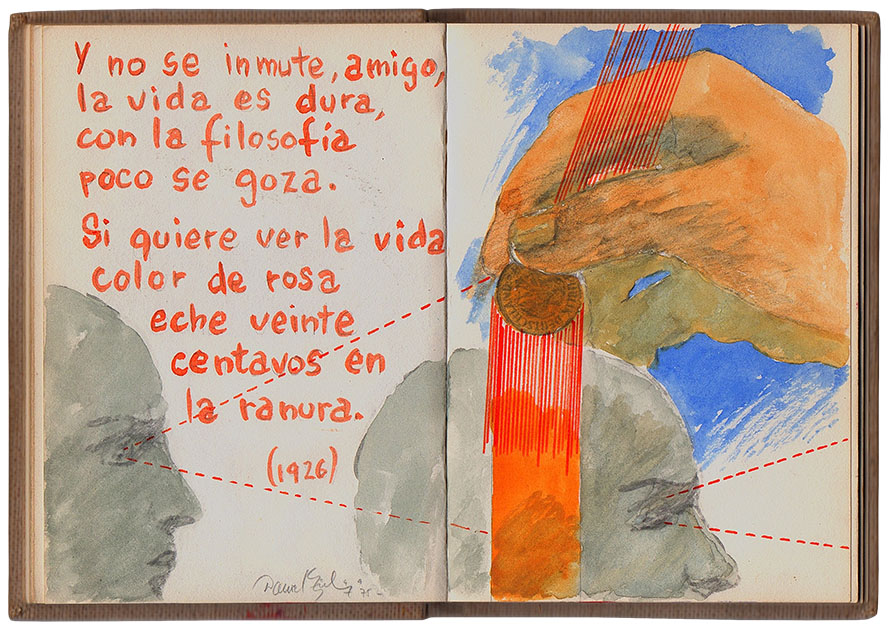 Y no se inmute, amigo,
la vida es dura,
con la filosofía
poco se goza.
Si quiere ver la vida
color de rosa
eche veinte
centavos en
la ranura.
(1926)